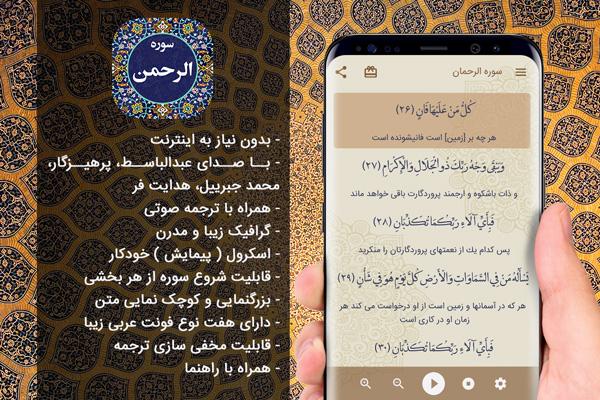 سوره
الرحمن
- بدون نیاز به اینترنت
- با صدای عبدالباسط، پرهیزگار،
محمد جبرییل، هدایت فر
- همراه با ترجمه صوتی
- گرافیک زیبا و مدرن
- اسکرول ( پیمایش ) خودکار
- قابلیت شروع سوره از هر بخشی
- بزرگنمایی و کوچک نمایی متن
- دارای هفت نوع فونت عربی زیبا
- قابلیت مخفی سازی ترجمه
- همراه با راهنما
سوره الرحمان
كُلُّ مَنْ عَلَيْهَا فَانٍ (۲۶)
هر چه بر [زمین] است فانی‌شونده است
وَيَبْقَى وَجْهُ رَبِّكَ ذُو الْجَلَالِ وَالْإِكْرَامِ (۲۷)
و ذات باشکوه و ارجمند پروردگارت باقی خواهد ماند
فَبِأَيِّ آلَاءِ رَبِّكُمَا تُكَذِّبَانِ (۲۸)
پس کدام یک از نعمتهای پروردگارتان را منکرید
يَسْأَلُهُ مَنْ فِي السَّمَاوَاتِ وَالْأَرْضِ كُلَّ يَوْمٍ هُوَ فِي شَأْنٍ (۲۹)
هر که در آسمانها و زمین است از او درخواست می کند هر
زمان او در کاری است
فَبِأَيِّ آلَاءِ رَبِّكُمَا تُكَذِّبَانِ (۳۰)